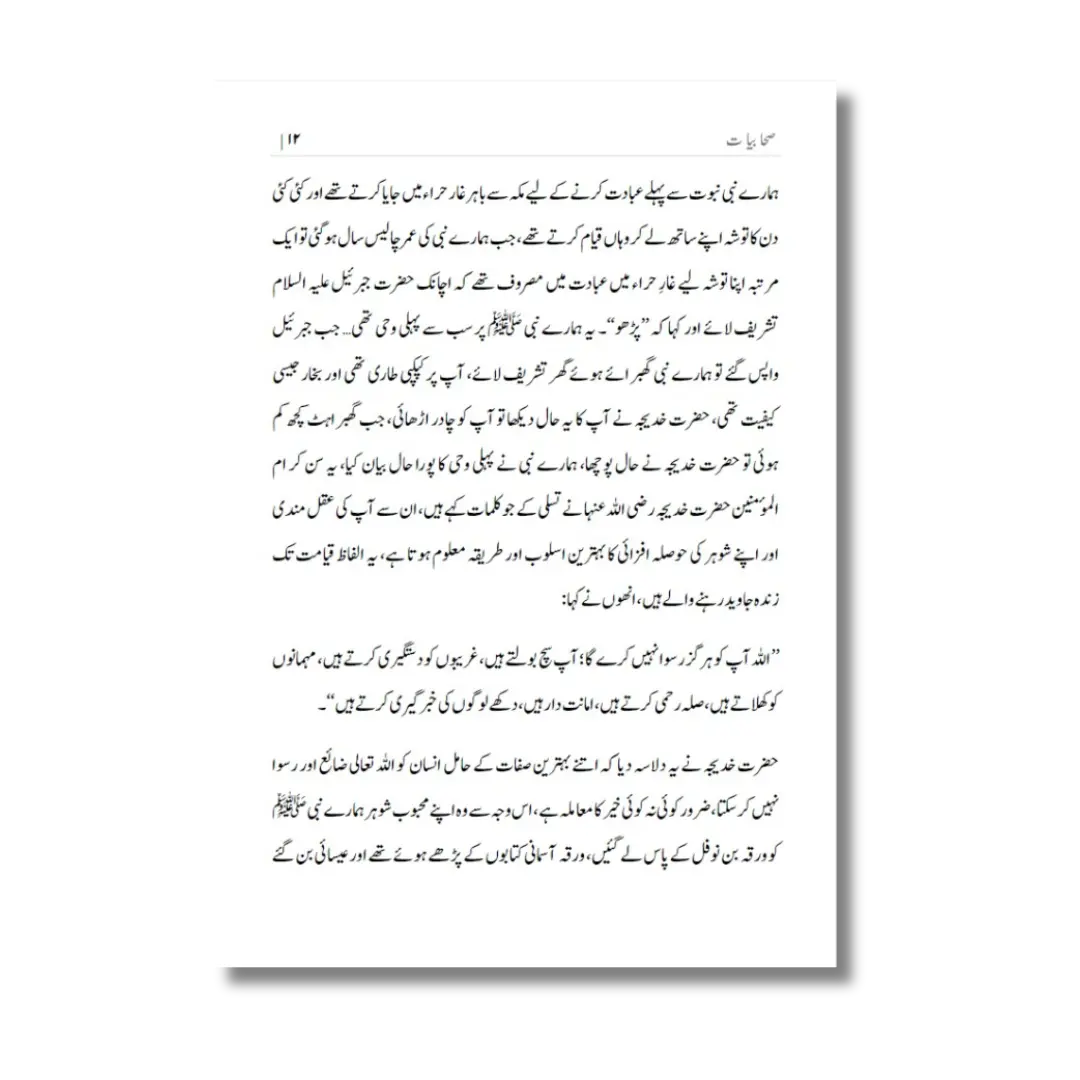 صحابیات
۱۲ |
ہمارے نبی نبوت سے پہلے عبادت کرنے کے لیے مکہ سے باہر غار حراء میں جایا کرتے تھے اور کئی کئی
دن کا توشہ اپنے ساتھ لے کر وہاں قیام کرتے تھے، جب ہمارے نبی کی عمر چالیس سال ہو گئی تو ایک
مرتبہ اپنا توشہ لیے غارِ حراء میں عبادت میں مصروف تھے کہ اچانک حضرت جبرئیل علیہ السلام
تشریف لائے اور کہا کہ ”پڑھو“۔ یہ ہمارے نبی ﷺ پر سب سے پہلی وحی تھی... جب جبرئیل
واپس گئے تو ہمارے نبی گھبرائے ہوئے گھر تشریف لائے، آپ پر کپکپی طاری تھی اور بخار جیسی
کیفیت تھی، حضرت خدیجہ نے آپ کا یہ حال دیکھا تو آپ کو چادر اڑھائی، جب گھبراہٹ کچھ کم
ہوئی تو حضرت خدیجہ نے حال پوچھا، ہمارے نبی نے پہلی وحی کا پورا حال بیان کیا، یہ سن کر ام
المؤمنین حضرت خدیجہ رضی اللہ عنہا نے تسلی کے جو کلمات کہے ہیں، ان سے آپ کی عقل مندی
اور اپنے شوہر کی حوصلہ افزائی کا بہترین اسلوب اور طریقہ معلوم ہوتا ہے، یہ الفاظ قیامت تک
زندہ جاوید رہنے والے ہیں، انھوں نے کہا:
”اللہ آپ کو ہرگز رسوا نہیں کرے گا؛ آپ سچ بولتے ہیں، غریبوں کو دستگیری کرتے ہیں، مہمانوں
کو کھلاتے ہیں، صلہ رحمی کرتے ہیں، امانت دار ہیں، دکھے لوگوں کی خبر گیری کرتے ہیں“۔
حضرت خدیجہ نے یہ دلاسہ دیا کہ اتنے بہترین صفات کے حامل انسان کو اللہ تعالی ضائع اور رسوا
نہیں کر سکتا، ضرور کوئی نہ کوئی خیر کا معاملہ ہے، اس وجہ سے وہ اپنے محبوب شوہر ہمارے نبی ﷺ
کو ورقہ بن نوفل کے پاس لے گئیں، ورقہ آسمانی کتابوں کے پڑھے ہوئے تھے اور عیسائی بن گئے